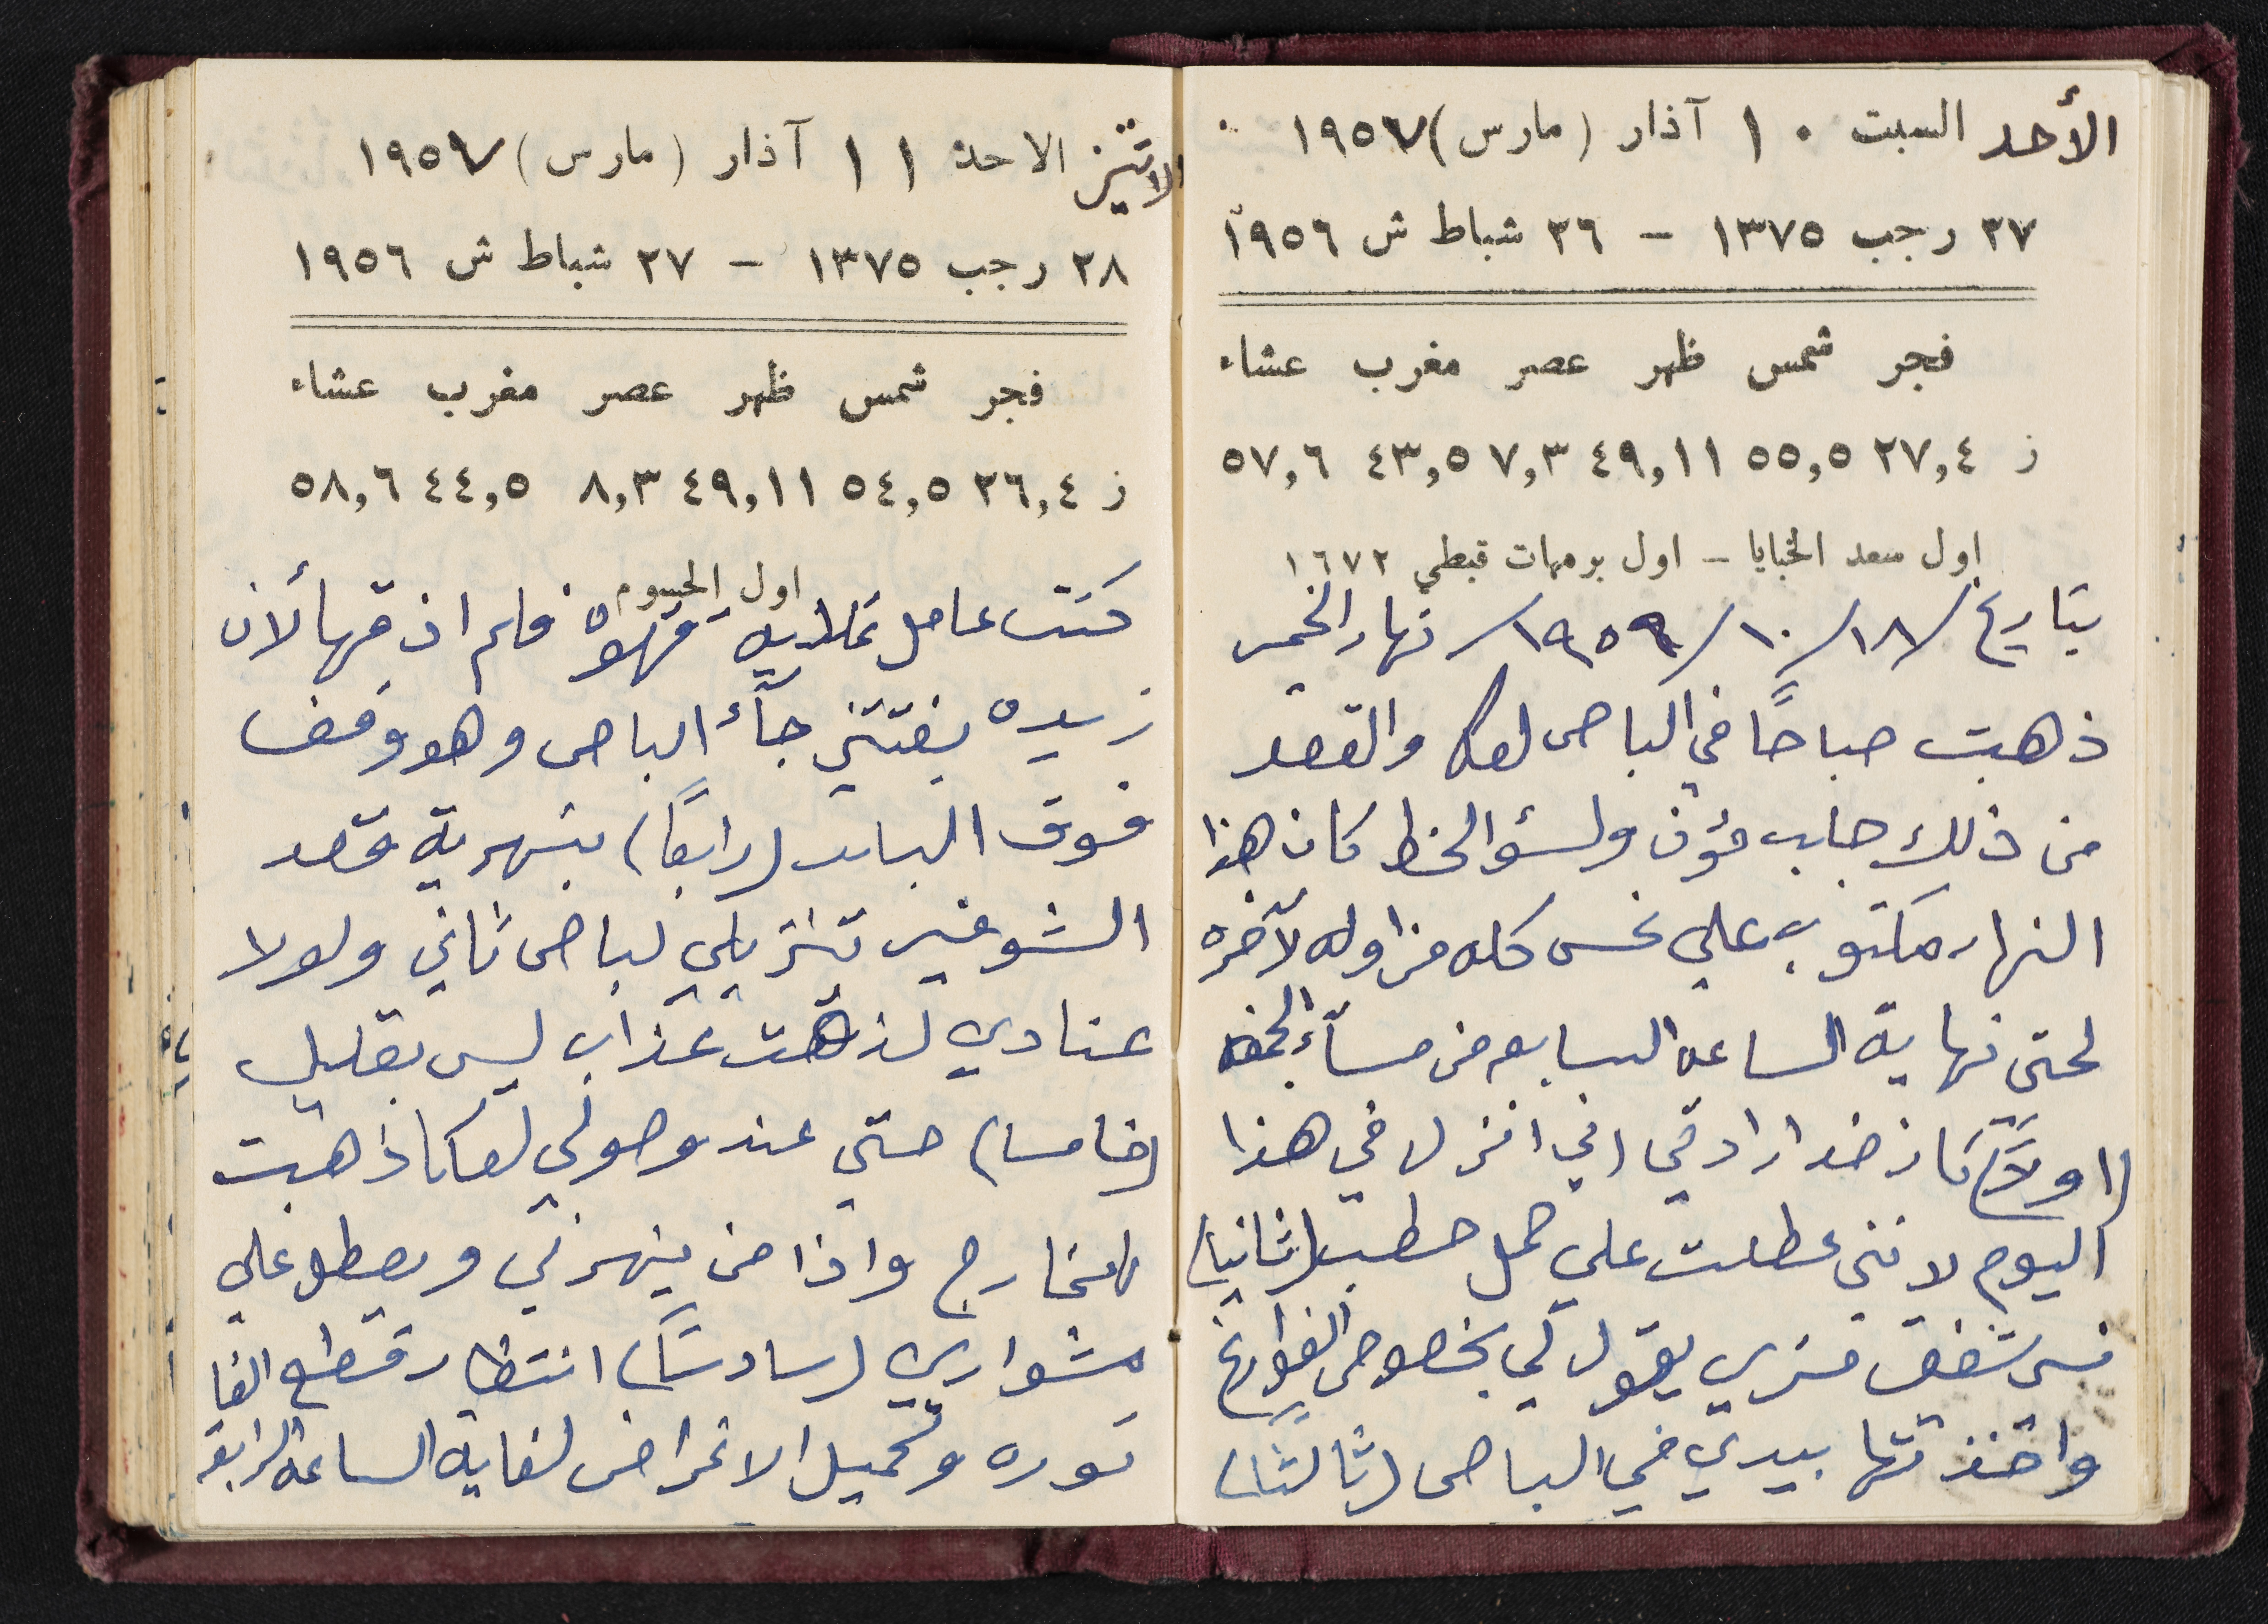 الأحد السبت ١٠ آذار (مارس) ١٩٥٧
٢٧ رجب ١٣٧٥ – ٢٦ شباط ش ١٩٥٦
فجر شمس ظهر عصر مغرب عشاء
ز ٢٧,٤ ٥٥,٥ ٤٩,١١ ٧,٣ ٤٣,٥ ٥٧,٦
اول سعد الخبايا – اول برمهات قبطي ١٦٧٢
بتاريخ ١٨/١٠/١٩٥٩/ نهار الخميس
ذهبت صباحًا في الباص لعكا والقصد
من ذلك جلب مؤن ولسؤ الحظ كان هذا
النهار مكتوب علي نحس كله من اوله لآخره
لحتى نهاية الساعه السابعه من مسآء
(اولاً) كان ضد ارادتي اني انزل في هذا
اليوم لانني عطلت على حمل حطب (ثانيا)
شفيق يقول لي بخصوص الفوارغ
واخذتها بيدي في الباص (ثالثًا)
الاثنين الاحد ١١ آذار (مارس) ١٩٥٧
٢٨ رجب ١٣٧٥ – ٢٧ شباط ش ١٩٥٦
فجر شمس ظهر عصر مغرب عشاء
ز ٢٦,٤ ٥٤,٥ ٤٩,١١ ٨,٣ ٤٤,٥ ٥٨,٦
اول الحسوم
كنت عامل غلاية قهوة فلم اذقها لأن
جآء الباص وهو وقف
فوق الباب (رابعًا) بنهرية قصد
الشوفير تنزيلي لباص ثاني ولولا
عنادي لذقت عذاب ليس بقليل
(خامسا) حتى عند وصولي لعكا ذهبت
للخارج واذا من ينهرني ويعطل علي
مشواري (سادسًا) انتظار قطع الفا
توره وتحميل الاغراض لغاية الساعة الرابعة